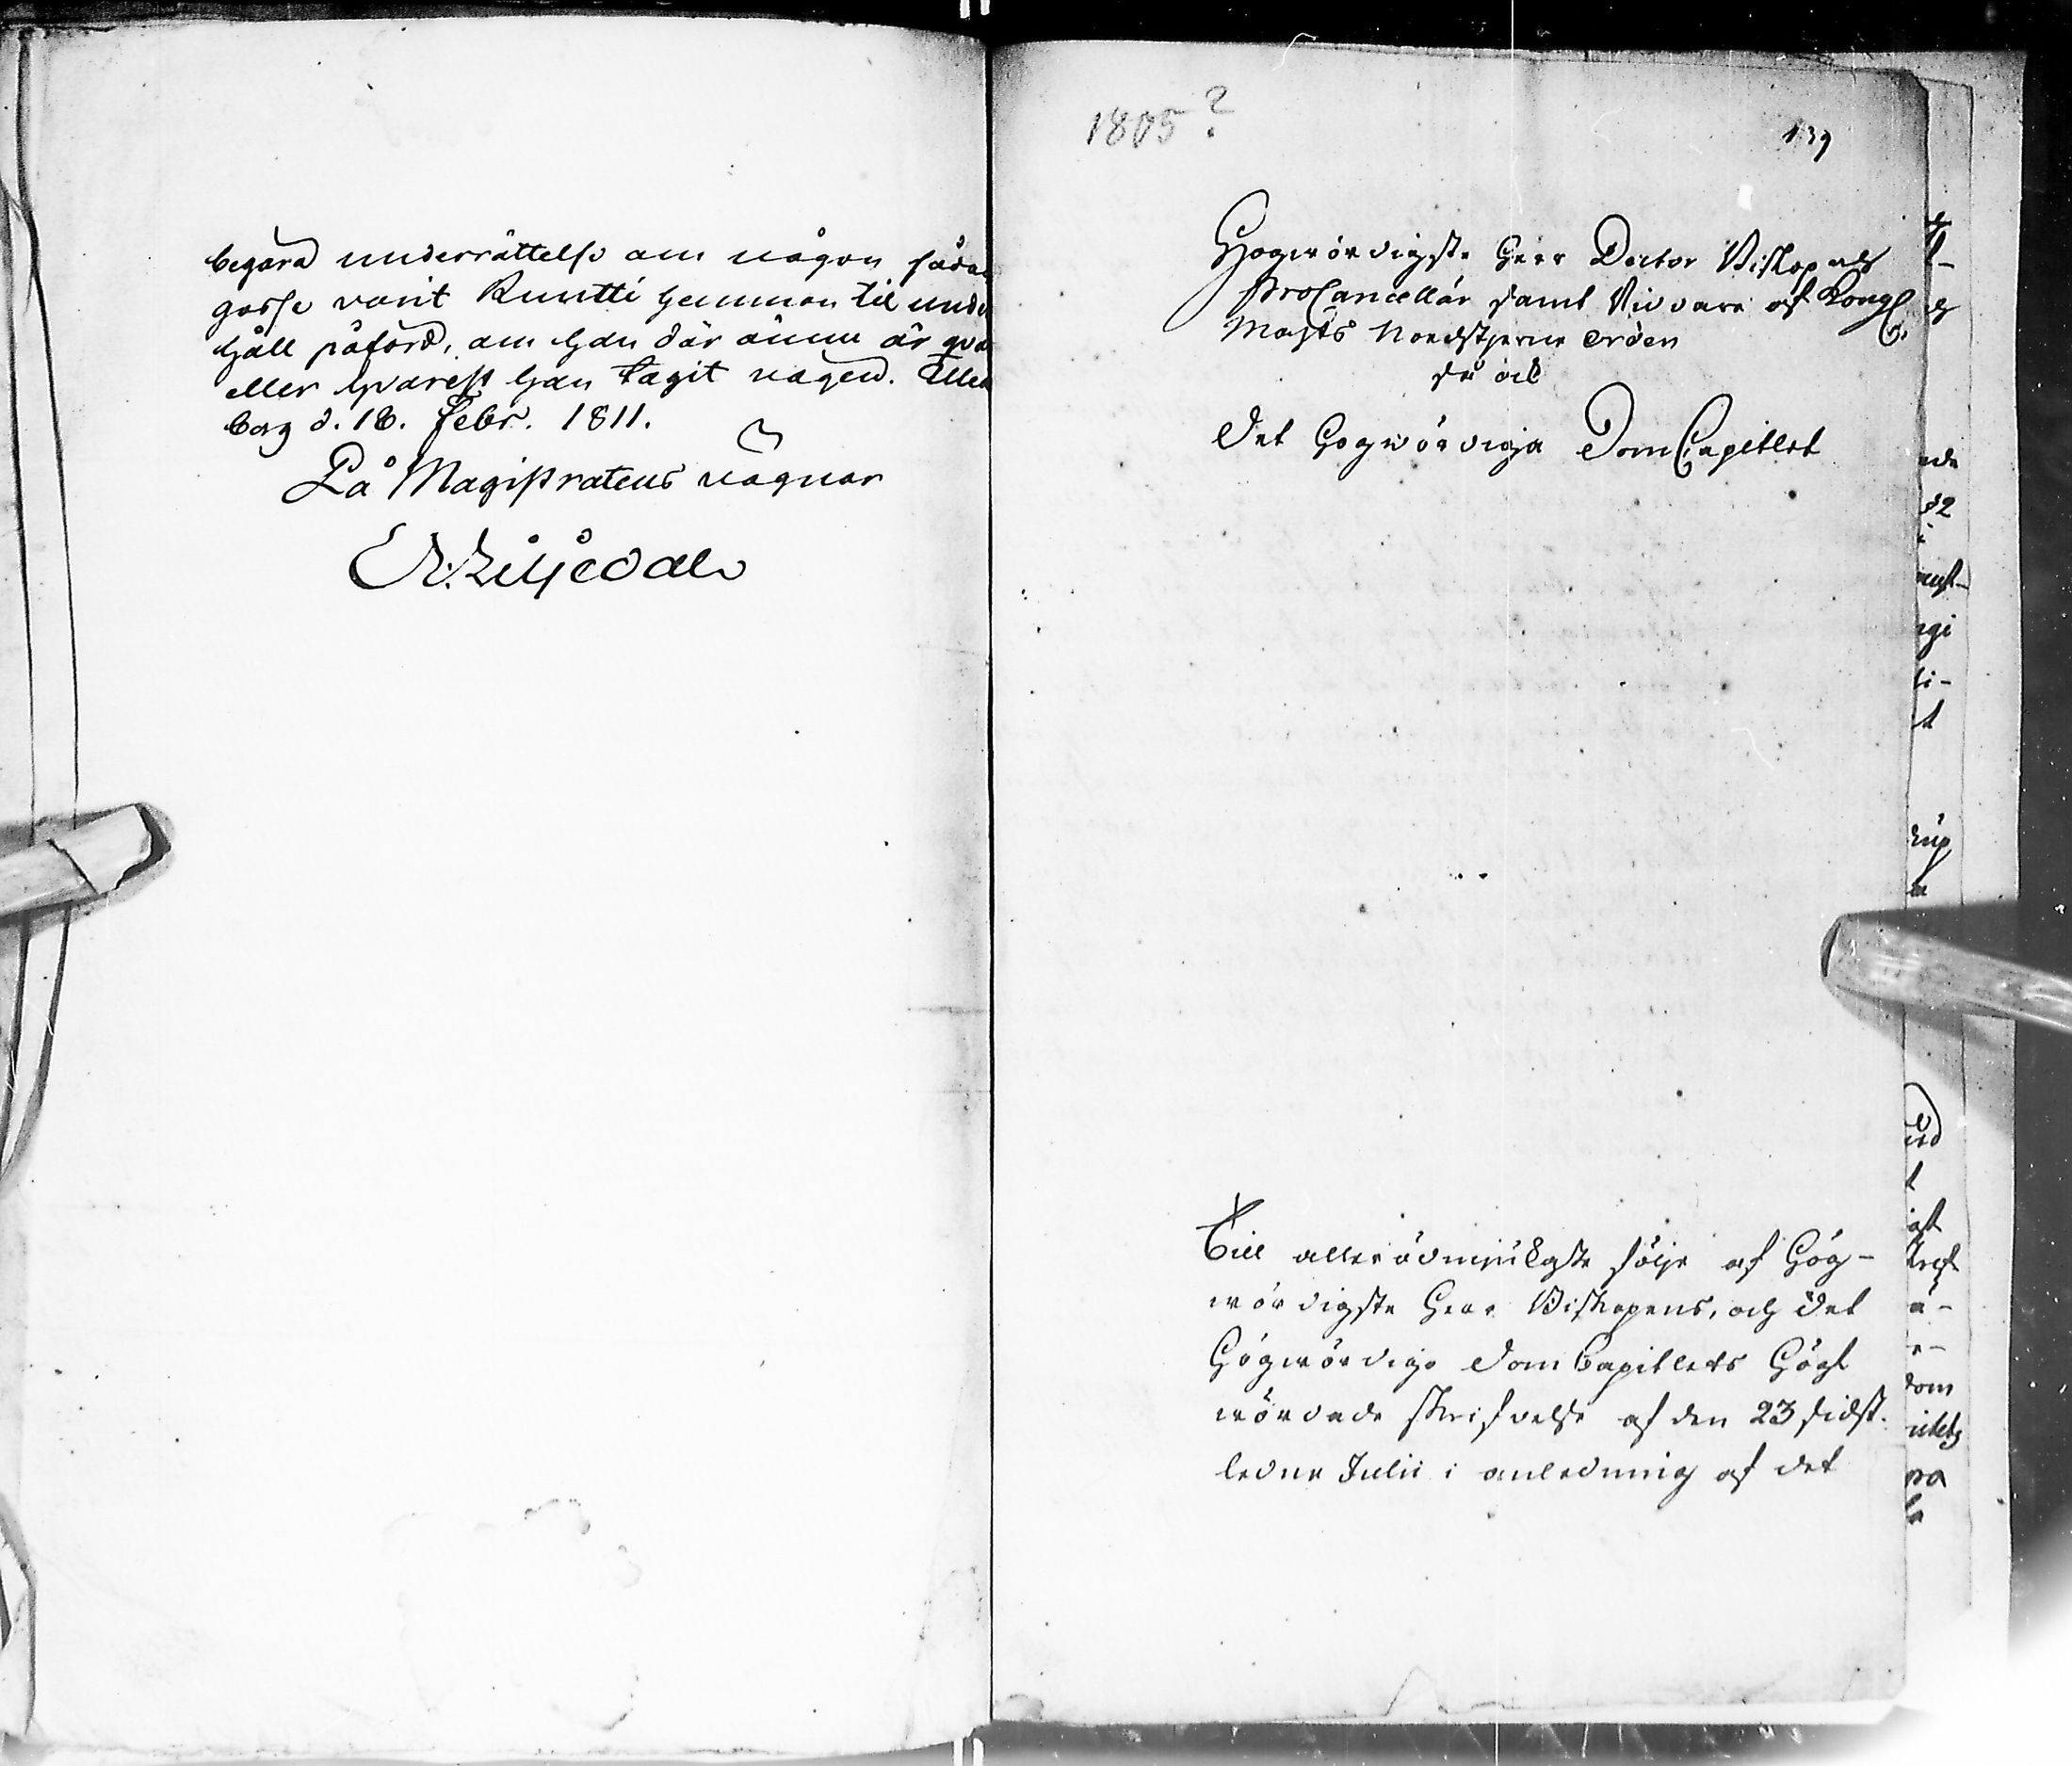 begära underrättelse om någon sådan
gosse varit Kuutti hemman til under
håll påförd, om han där ännu är qvar
eller hvarest han tagit vägen. Uleå
borg d. 18. Febr. 1811.
På Magistratens vägnar
Er. Liljedal
1805?
139
Högwördigste Herr Doctor Biskop och
ProCancellär samt Riddare af Kongl.
Majts Nordstjerne orden
så ock
Det Högwördiga DomCapitlet
Till allerödmjukaste följe af Hög-
wördigste Herr Biskopens, och det
Högwördiga DomCapitlets Högt
wördade skrifvelse af den 23 sidst.
ledne Julii i anledning af det